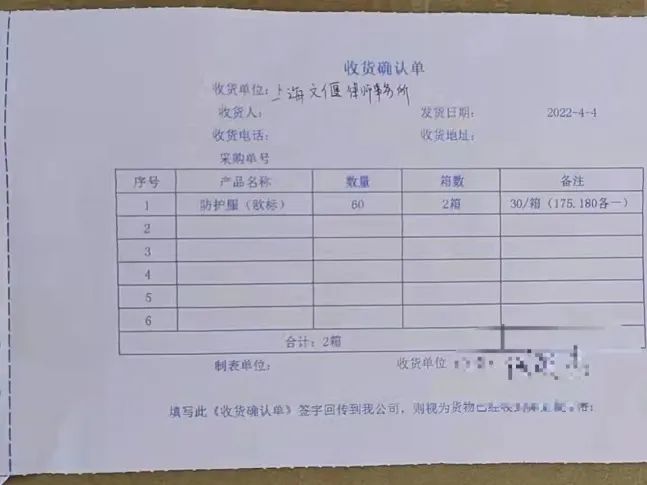 收货确认单
收货单位：上海文偃律师事务所
收货人： 发货日期： 2022-4-4
收货电话： 收货地址：
采购单号
序号 产品名称 数量 箱数 备注
1 防护服（欧标） 60 2箱 30/箱（175.180各一）
2
3
4
5
6
合计：2箱
制表单位： 收货单位
填写此《收货确认单》签字回传到我公司，则视为货物已经收到